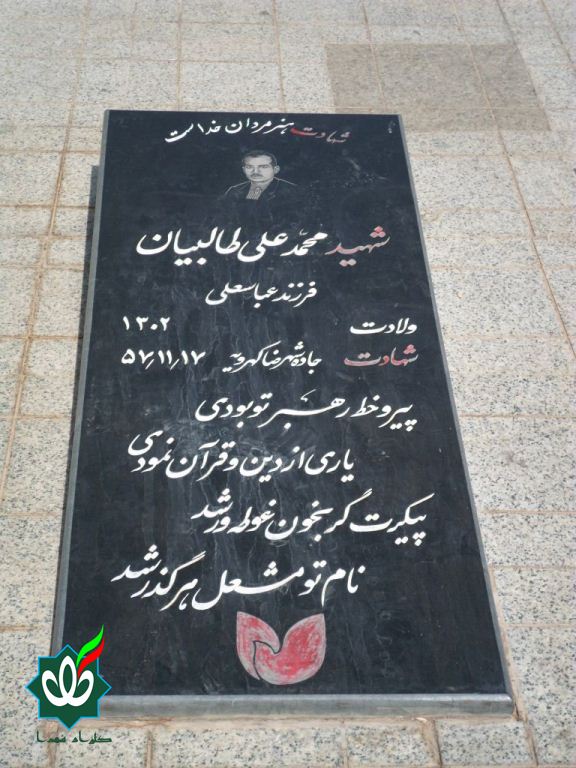 شهادت هنر مردان خداست
شهید محمد علی طالبیان
فرزند عباسعلی
ولادت ۱۳۰۲
شهادت جاده شهرضا کهرویه ۵۷٫۱۱٫۱۷
پیرو خط رهبر تو بودی
یاری از دین و قرآن نمودی
پیکرت گر بخون غوطه ور شد
نام تو مشعل هر گذر شد
گلزار شهدا